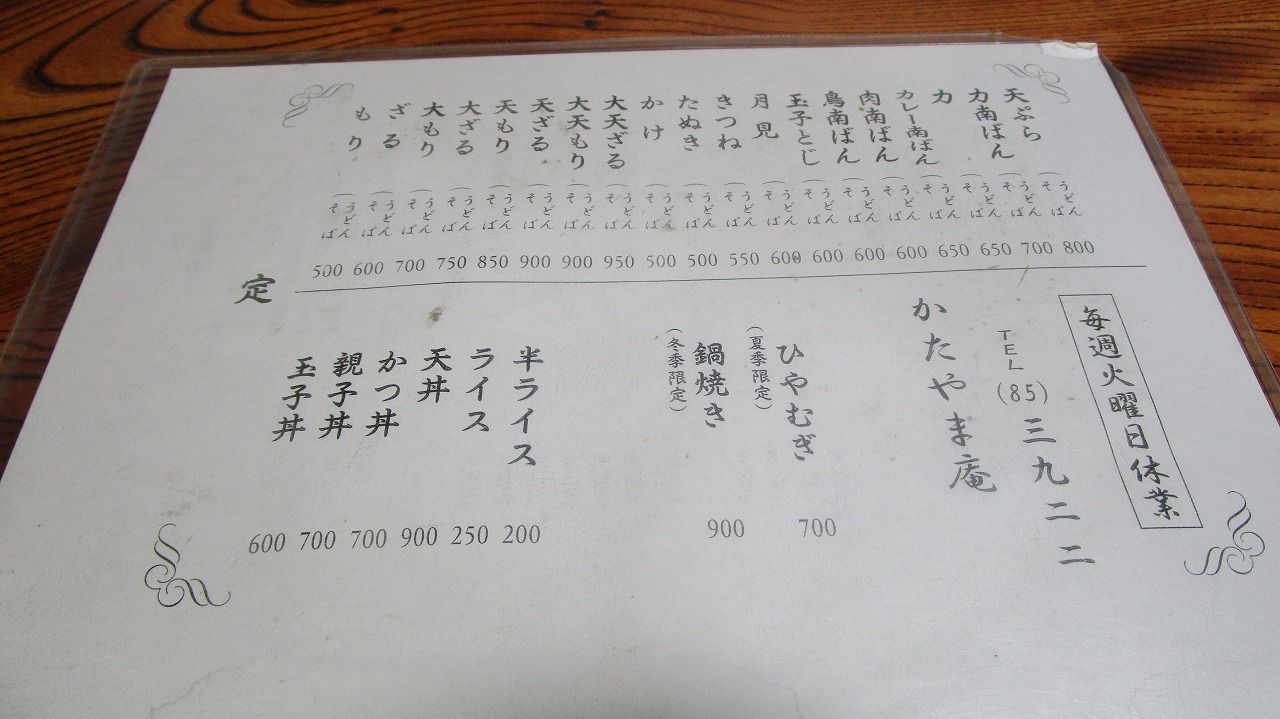 天ぷら（うどん そば 800
力南ばん（うどん そば 700
力（うどん そば 650
カレー南ばん（うどん そば 650
肉南ばん（うどん そば 600
鳥南ばん（うどん そば 600
玉子とじ（うどん そば 600
月見（うどん そば 600
きつね（うどん そば 550
たぬき（うどん そば 500
かけ（うどん そば 500
大天ざる（うどん そば 950
大天もり（うどん そば 900
天ざる（うどん そば 900
天もり（うどん そば 850
大ざる（うどん そば 750
大もり（うどん そば 700
ざる（うどん そば 600
もり（うどん そば 500
定
毎週火曜日休業
TEL(85)三九二二
かたやま庵
ひやむぎ 700
（夏季限定）
鍋焼き 900
（冬季限定）
半ライス 200
ライス 250
天丼 900
かつ丼 700
親子丼 700
玉子丼 600